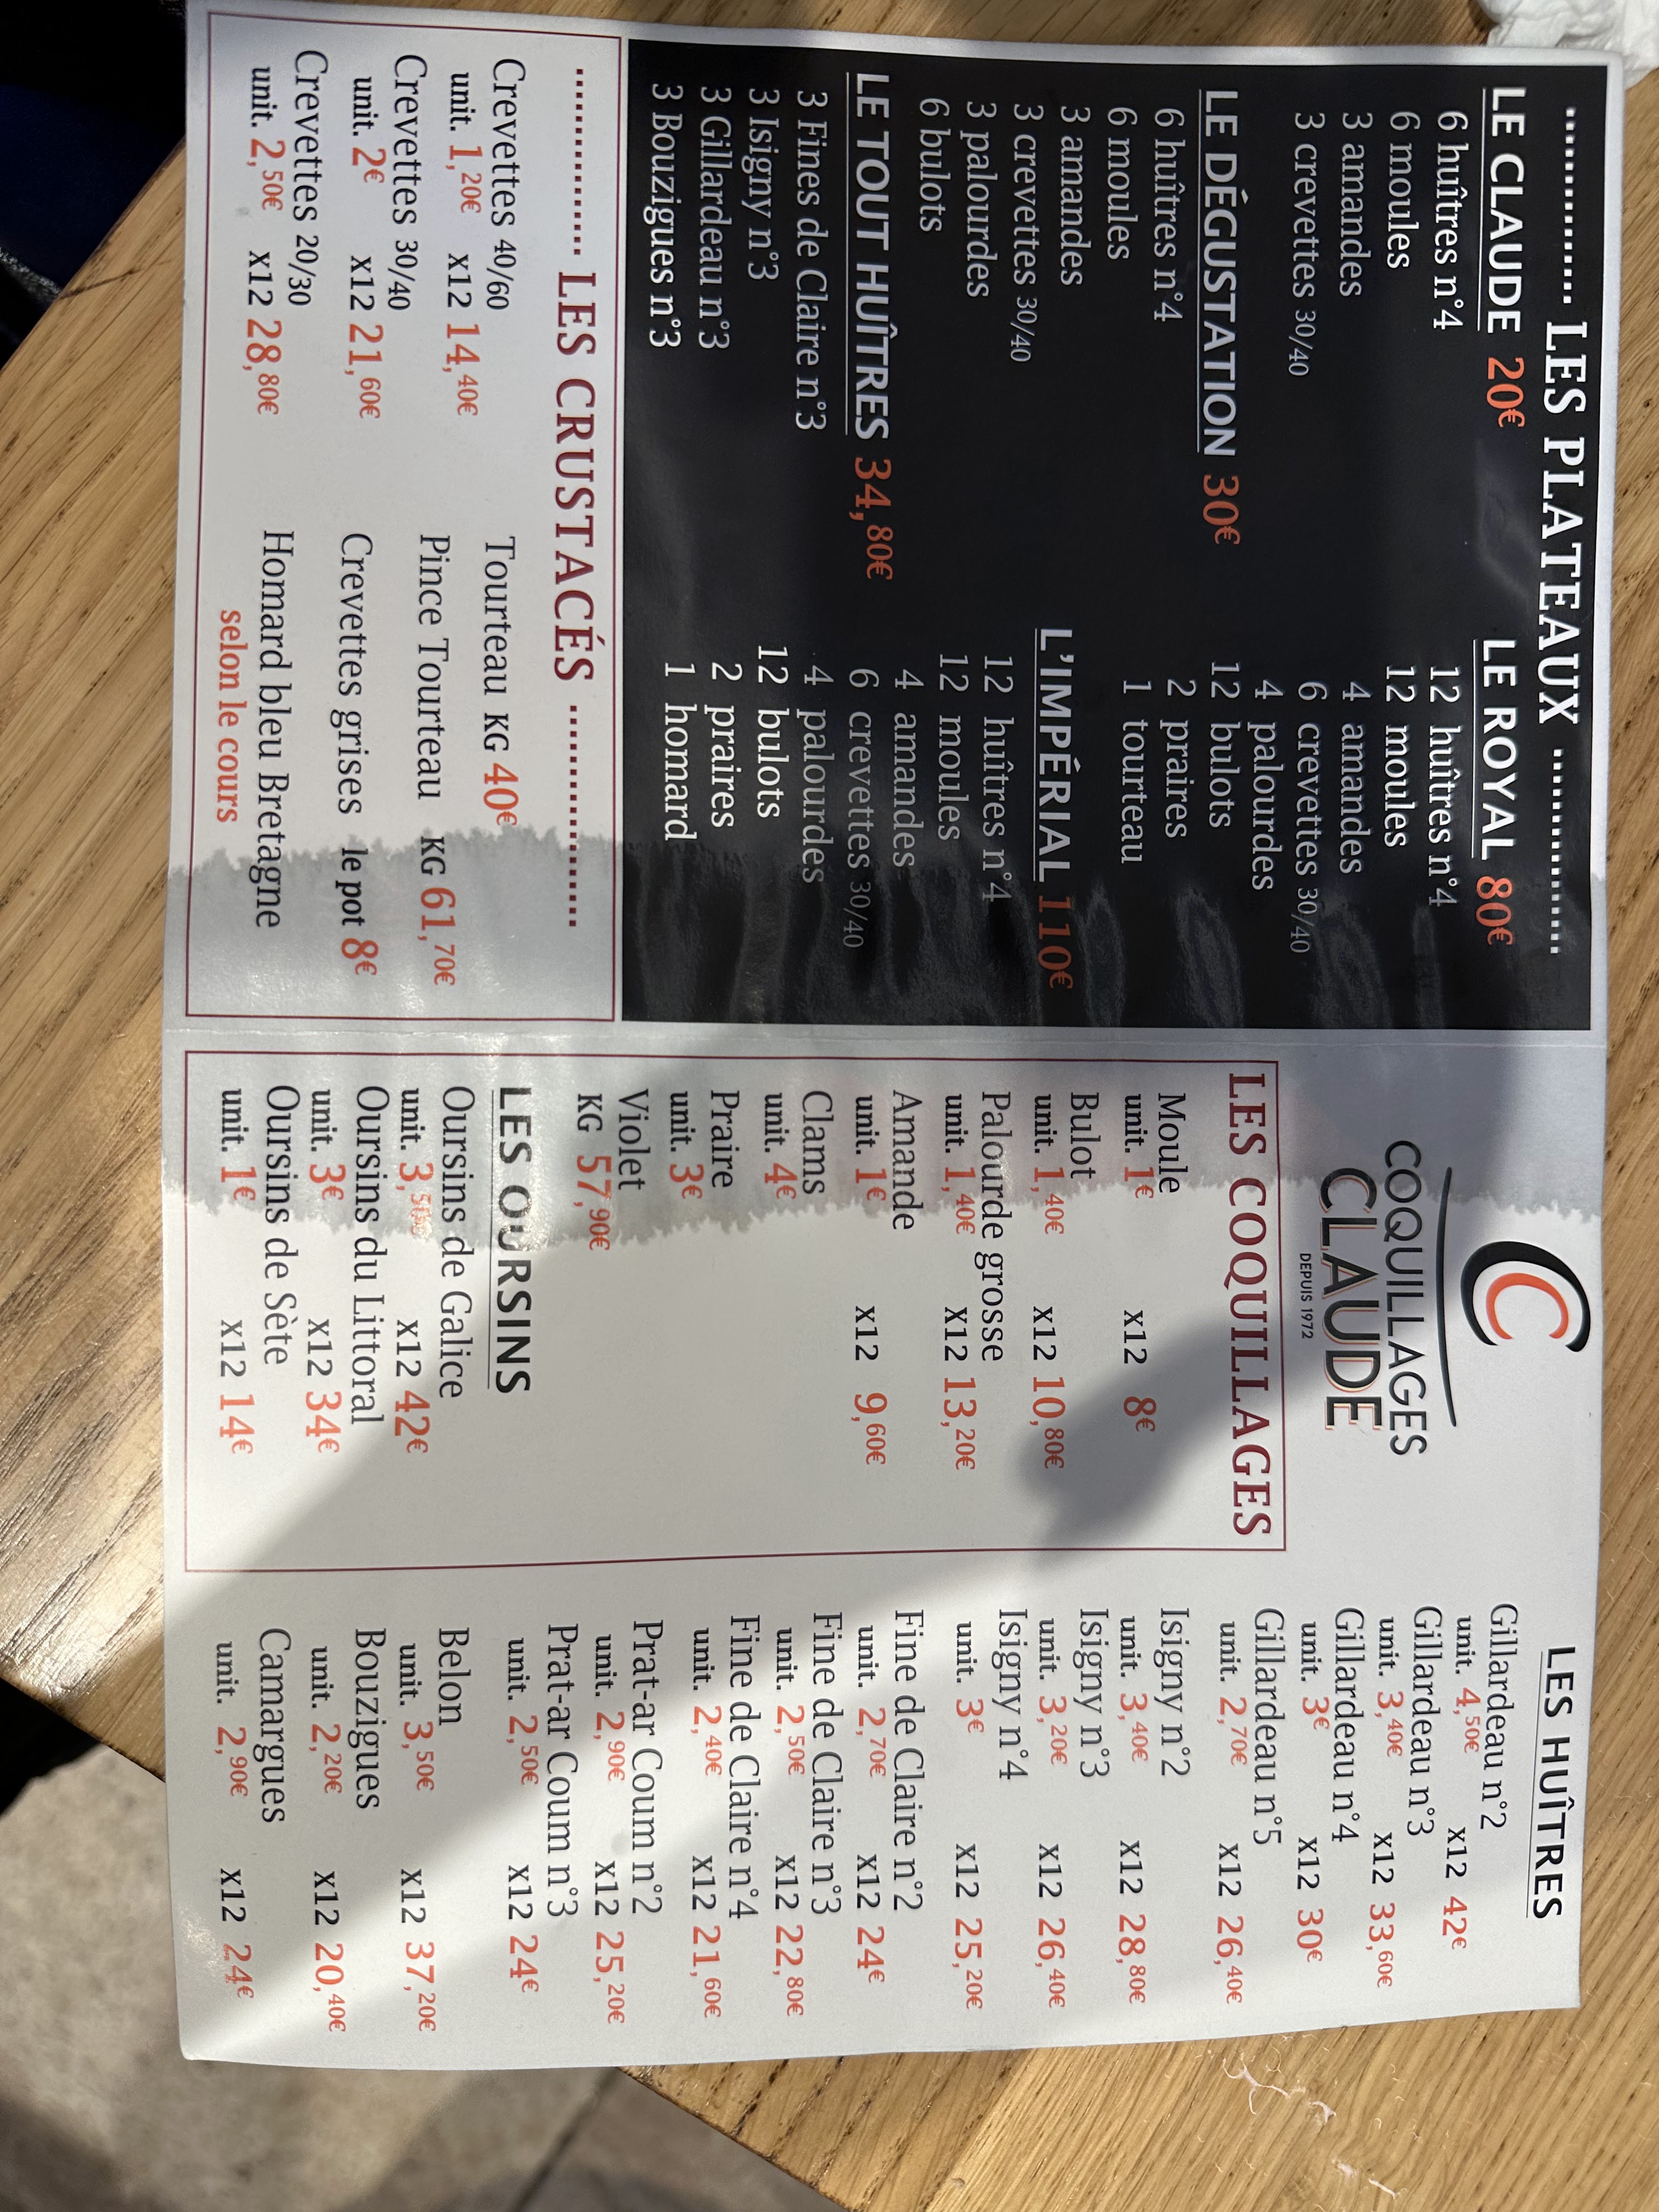 ............ LES PLATEAUX ............
LE CLAUDE 20€
6 huîtres n°4
6 moules
3 amandes
3 crevettes 30/40
LE DÉGUSTATION 30€
6 huîtres n°4
6 moules
3 amandes
3 crevettes 30/40
3 palourdes
6 bulots
LE TOUT HUÎTRES 34,80€
3 Fines de Claire n°3
3 Isigny n°3
3 Gillardeau n°3
3 Bouzigues n°3
LE ROYAL 80€
12 huîtres n°4
12 moules
4 amandes
6 crevettes 30/40
4 palourdes
12 bulots
2 praires
1 tourteau
L'IMPÉRIAL 110€
12 huîtres n°4
12 moules
4 amandes
6 crevettes 30/40
4 palourdes
12 bulots
2 praires
1 homard
............ LES CRUSTACÉS ..............
Crevettes 40/60
unit. 1,20€ x12 14,40€
Crevettes 30/40
unit. 2€ x12 21,60€
Crevettes 20/30
unit. 2,50€ x12 28,80€
Tourteau KG 40€
Pince Tourteau KG 61,70€
Crevettes grises le pot 8€
Homard bleu Bretagne
selon le cours
COQUILLAGES
CLAUDE
DEPUIS 1972
LES COQUILLAGES
Moule
unit. 1€ x12 8€
Bulot
unit. 1,40€ x12 10,80€
Palourde grosse
unit. 1,40€ x12 13,20€
Amande
unit. 1€ x12 9,60€
Clams
unit. 4€
Praire
unit. 3€
Violet
KG 57,90€
LES OURSINS
Oursins de Galice
unit. 3,50€ x12 42€
Oursins du Littoral
unit. 3€ x12 34€
Oursins de Sète
unit. 1€ x12 14€
LES HUÎTRES
Gillardeau n°2
unit. 4,50€ x12 42€
Gillardeau n°3
unit. 3,40€ x12 33,60€
Gillardeau n°4
unit. 3€ x12 30€
Gillardeau n°5
unit. 2,70€ x12 26,40€
Isigny n°2
unit. 3,40€ x12 28,80€
Isigny n°3
unit. 3,20€ x12 26,40€
Isigny n°4
unit. 3€ x12 25,20€
Fine de Claire n°2
unit. 2,70€ x12 24€
Fine de Claire n°3
unit. 2,50€ x12 22,80€
Fine de Claire n°4
unit. 2,40€ x12 21,60€
Prat-ar Coum n°2
unit. 2,90€ x12 25,20€
Prat-ar Coum n°3
unit. 2,50€ x12 24€
Belon
unit. 3,50€ x12 37,20€
Bouzigues
unit. 2,20€ x12 20,40€
Camargues
unit. 2,90€ x12 24€